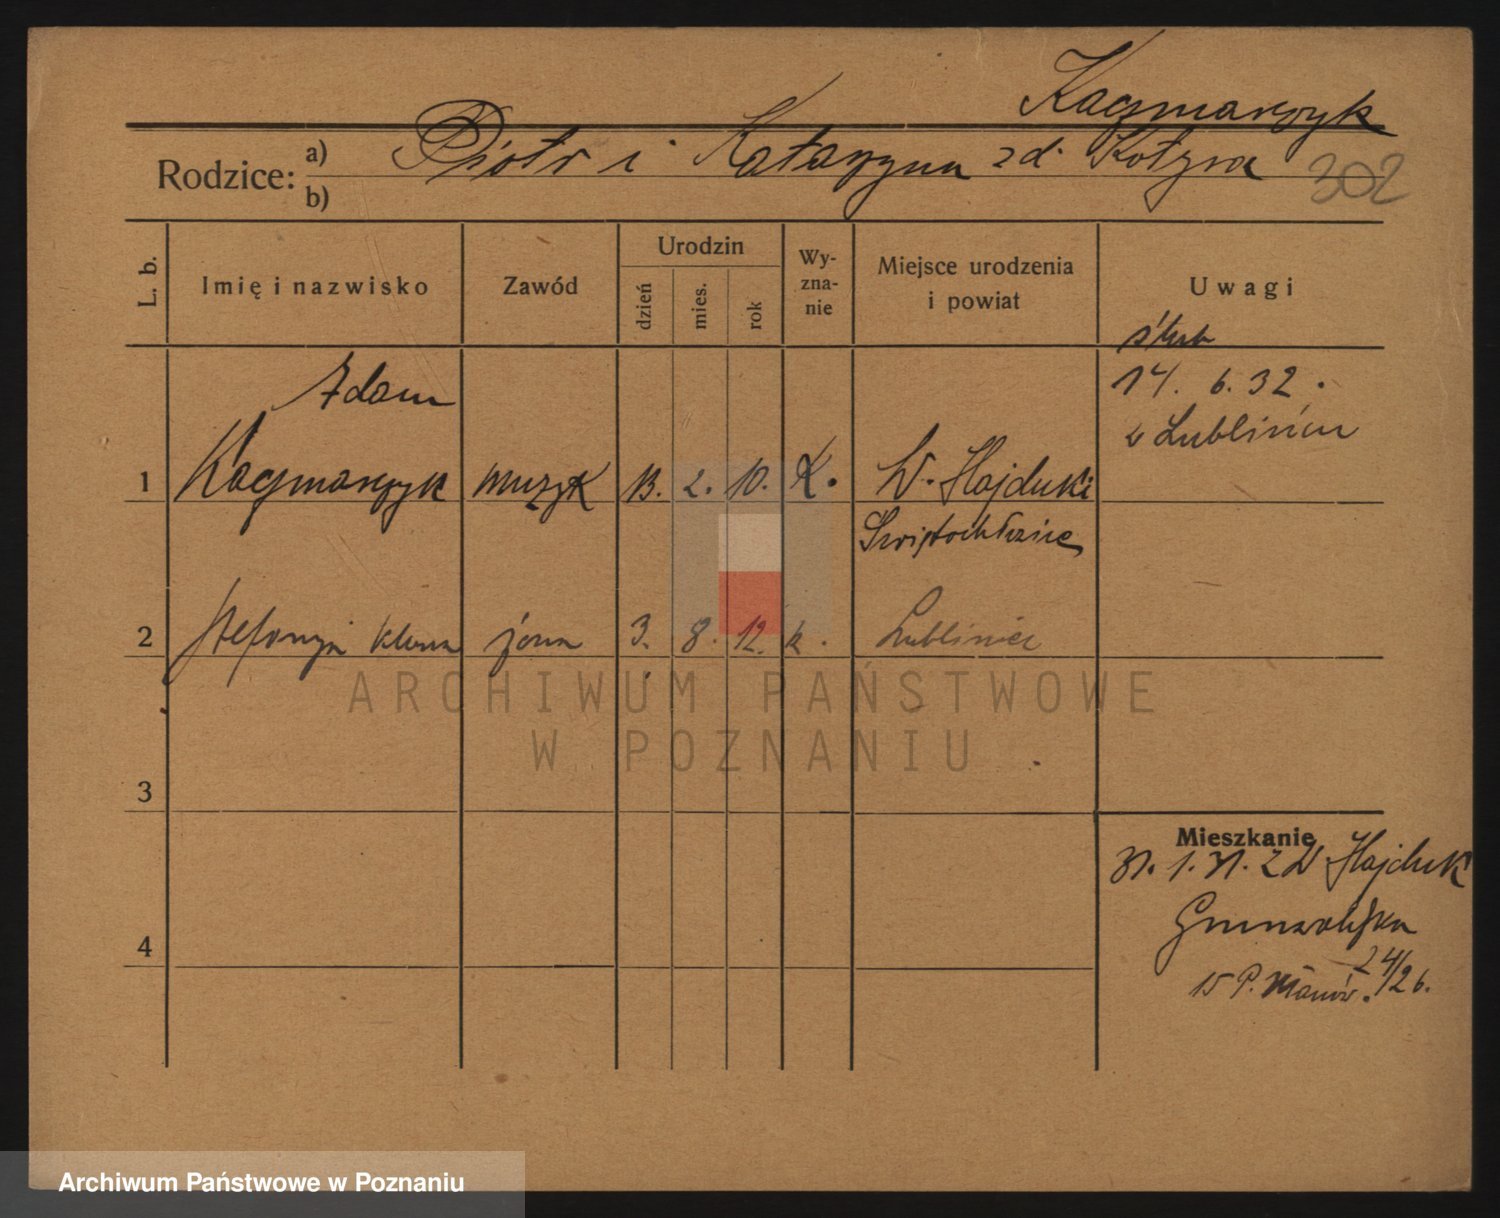 Kaczmarczyk
Rodzice: a) Piotr i Katarzyna zd. Kotyra
b)
302
L. b.
Imię i nazwisko
Zawód
Urodzin
dzień
mies.
rok
Wy-
zna-
nie
Miejsce urodzenia
i powiat
Uwagi
ślub
14. 6. 32.
w Lublińcu
Adam
1 Kaczmarczyk muzyk 13. 2. 10. K. W. Hajduki
Świętochłowice
2 Stefanja żona 3. 8. 12. k. Lubliniec
3
4
Mieszkanie
31. 1. 31. z W Hajduk
Grunwaldzka
24/26.
15 P.
ARCHIWUM PAŃSTWOWE
W POZNANIU
Archiwum Państwowe w Poznaniu